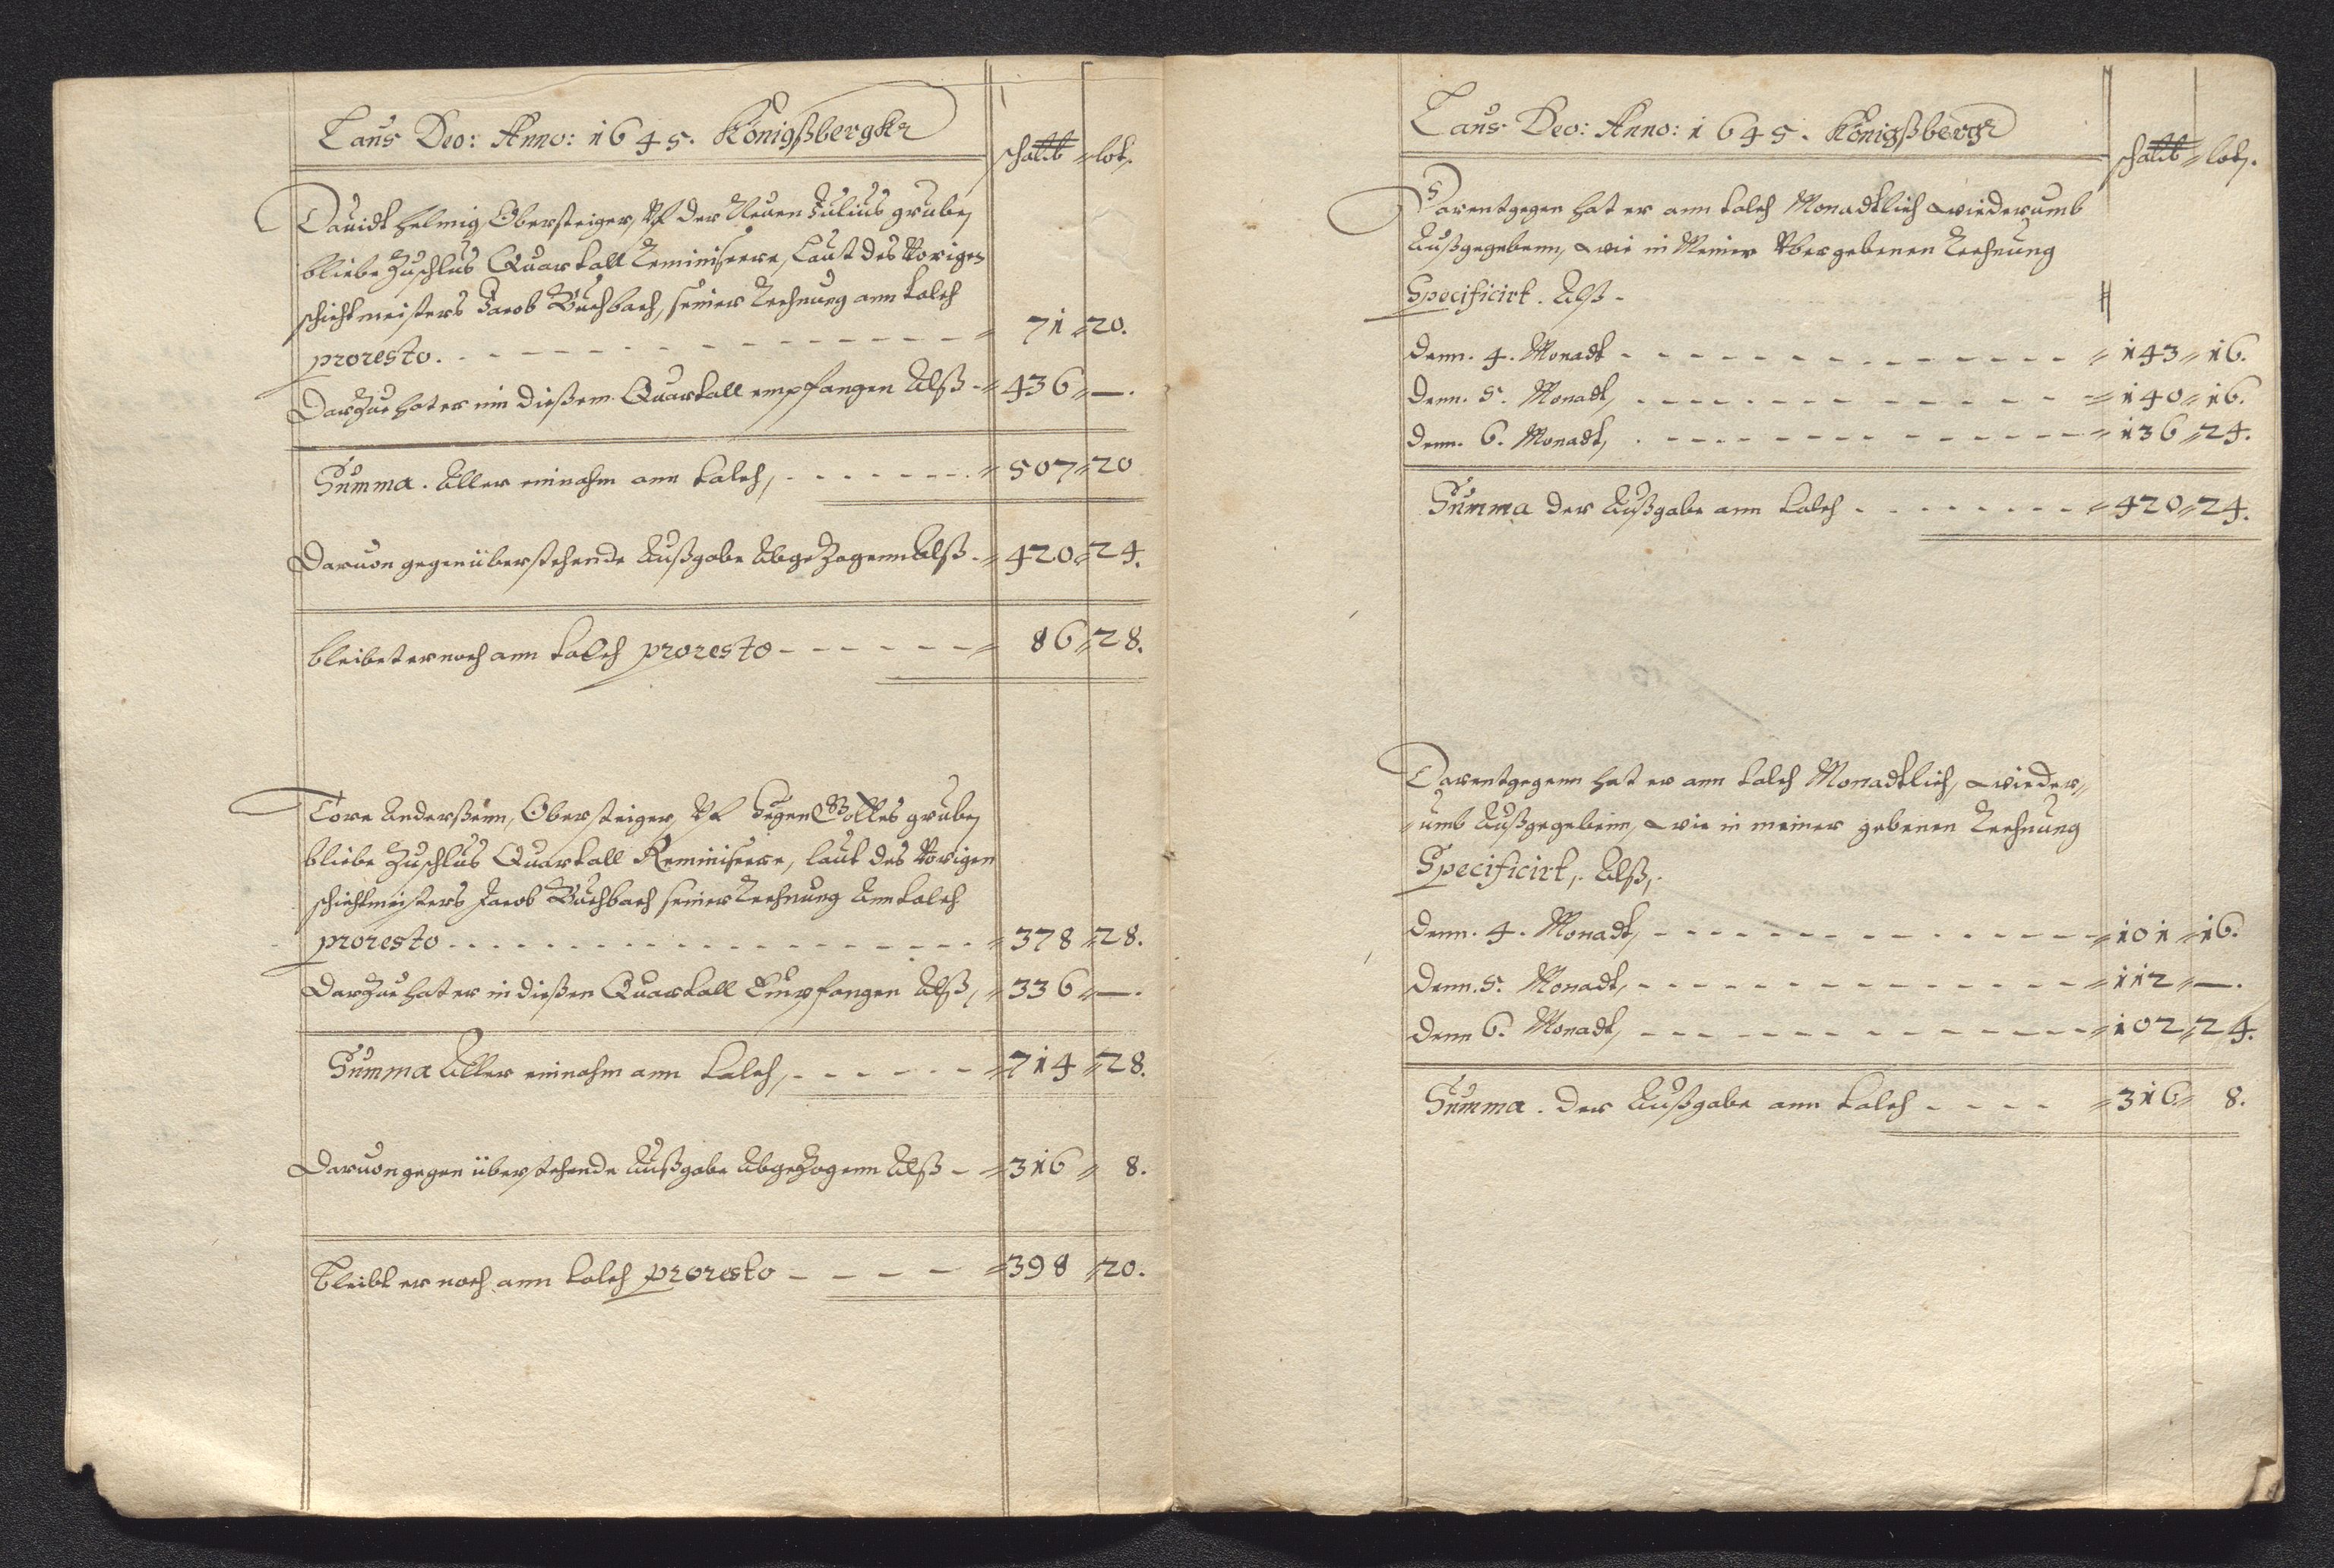 Laus Deo: Anno: 1645. Königßbergkr
schalib lot.
Dauidt Helmig Obersteiger, Vf der Neuen Julius gruben
bliebe Zuschlus Quartall Reminiscere, Laut des Vorigen
schichtmeisters Jacob Buchbach, seiner Rechnung ann talch
proresto. 71 20.
Darzue hat er inn dießem Quartall empfangen Alß 436 —.
Summa. Aller einnahm ann talch, 507 20
Daruon gegenüberstehende Außgabe Abgezogenn Alß 420 24.
bleibet er noch ann talch proresto 86 28.
Tore Anderßenn, Obersteiger, Vf Segen Gottes gruben
bliebe Zuschlus Quartall Reminiscere, laut des Vorigen
schichtmeisters Jacob Buchbach seiner Rechnung Ann talch
proresto 378 28.
Darzue hat er in dießen Quartall Empfangen Alß, 336 —.
Summa Aller einnahm ann talch, 714 28.
Daruon gegen überstehende Außgabe Abgezogenn Alß 316 8.
Bleibt er noch ann talch proresto 398 20.
Laus Deo: Anno: 1645. Königßbergr
schalib lot.
Darentgegen hat er ann talch Monadtlich wiederumb
Außgegebenn, wie in Meiner Vbergebenen Rechnung
Specificirt. Alß.
Denn. 4. Monadt 143 16.
Denn. 5. Monadt, 140 16.
Denn. 6. Monadt, 136 24.
Summa der Außgabe ann talch 420 24.
Darentgegenn hat er ann talch Monadtlich, wieder,,
umb Außgegebenn, wie in meiner gebenen Rechnung
Specificirt, Alß,
Denn. 4. Monadt, 101 16.
Denn. 5. Monadt, 112 —.
Denn 6. Monadt, 102 24.
Summa. der Außgabe ann talch 316 8.